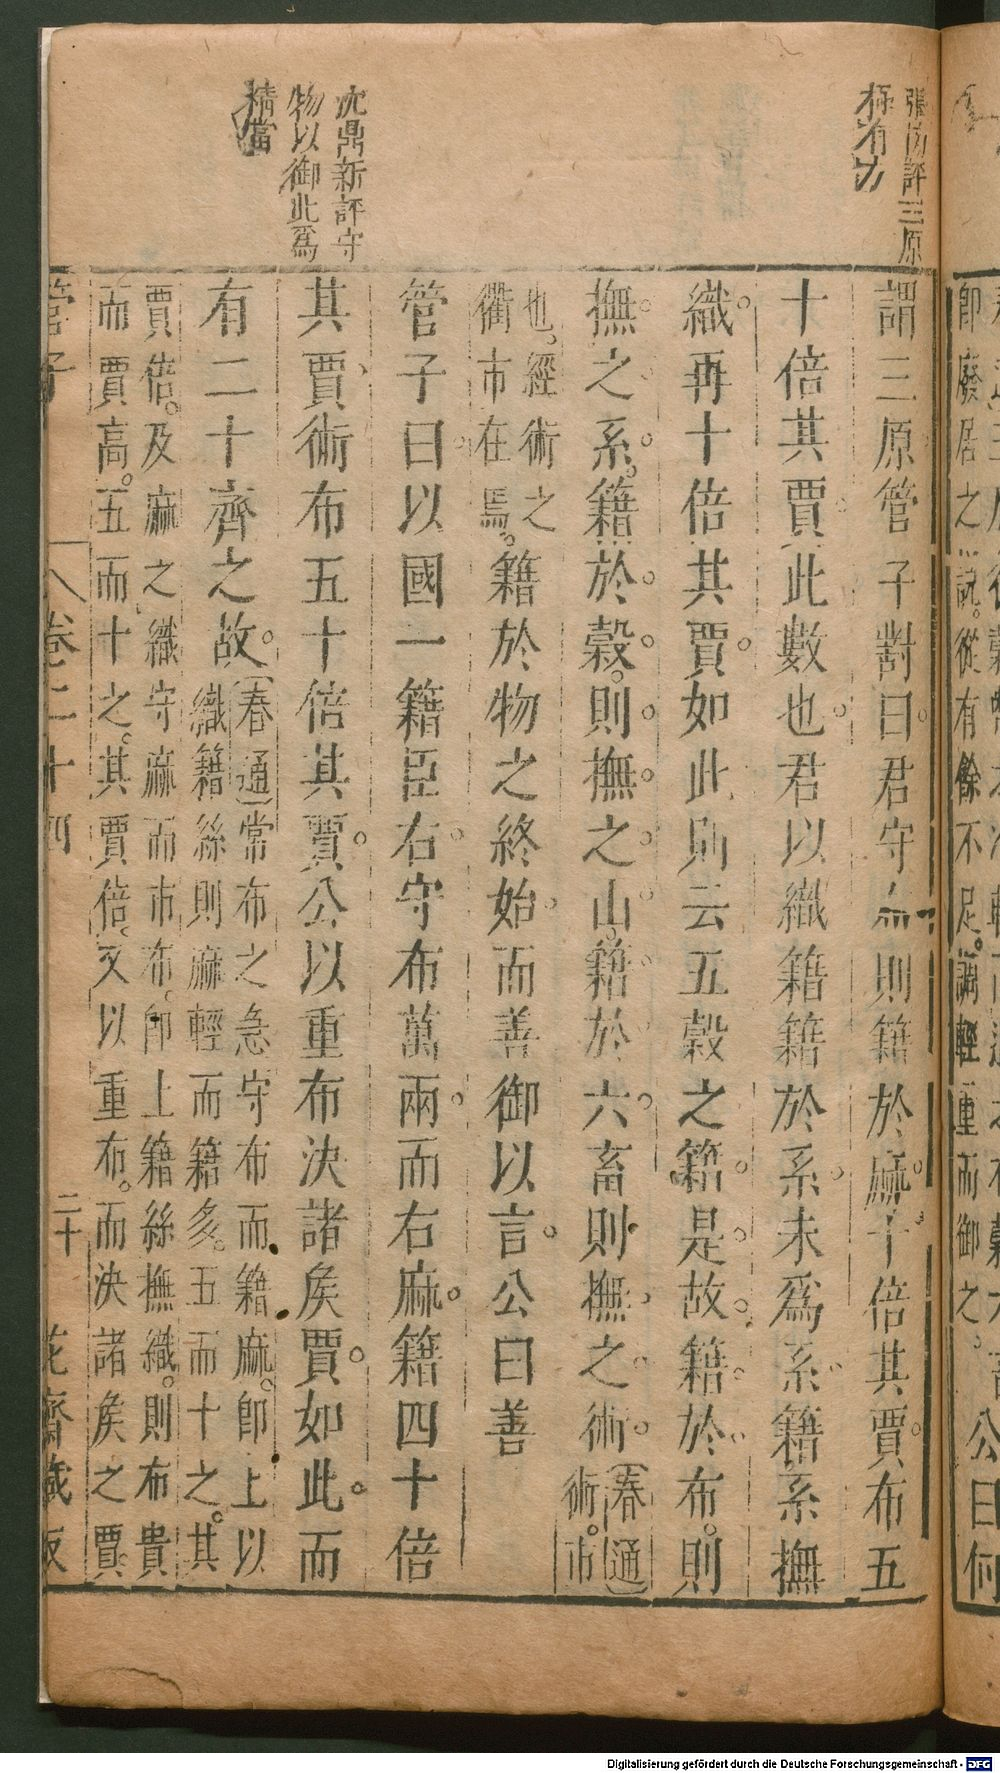 即廢居之說。從有餘不足。調輕重而御之。公曰何
張榜評三原
極有功
謂三原管子對曰君守布則籍於麻十倍其賈布五
十倍其賈此數也君以織籍籍於系未爲系籍系撫
織再十倍其賈如此則云五穀之籍是故籍於布則
撫之系籍於穀則撫之山籍於六畜則撫之術(春通)術。市
也。經術之
衢市在焉。籍於物之終始而善御以言公曰善
管子曰以國一籍臣右守布萬兩而右麻籍四十倍
沈鼎新評守
物以御此爲
精當
其賈術布五十倍其賈公以重布決諸矦賈如此而
有二十齊之故(春通)常布之急守布而籍麻。卽上以
織籍絲則麻輕而籍多。五而十之。其
賈倍。及麻之織守麻而市布。卽上籍絲撫織。則布貴
而賈高。五而十之。其賈倍。又以重布。而決諸矦之賈
管子
卷二十四
二十
花齋藏板
Digitalisierung gefördert durch die Deutsche Forschungsgemeinschaft - DFG